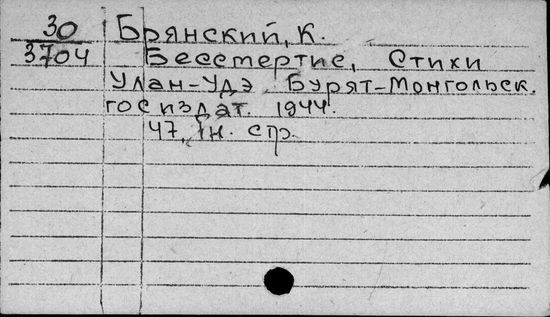 30 Брянский, К.
3704 Бессмертие, Стихи
Улан-Удэ Бурят-Монгольск.
госиздат. 1944.
47, 1н. стр.